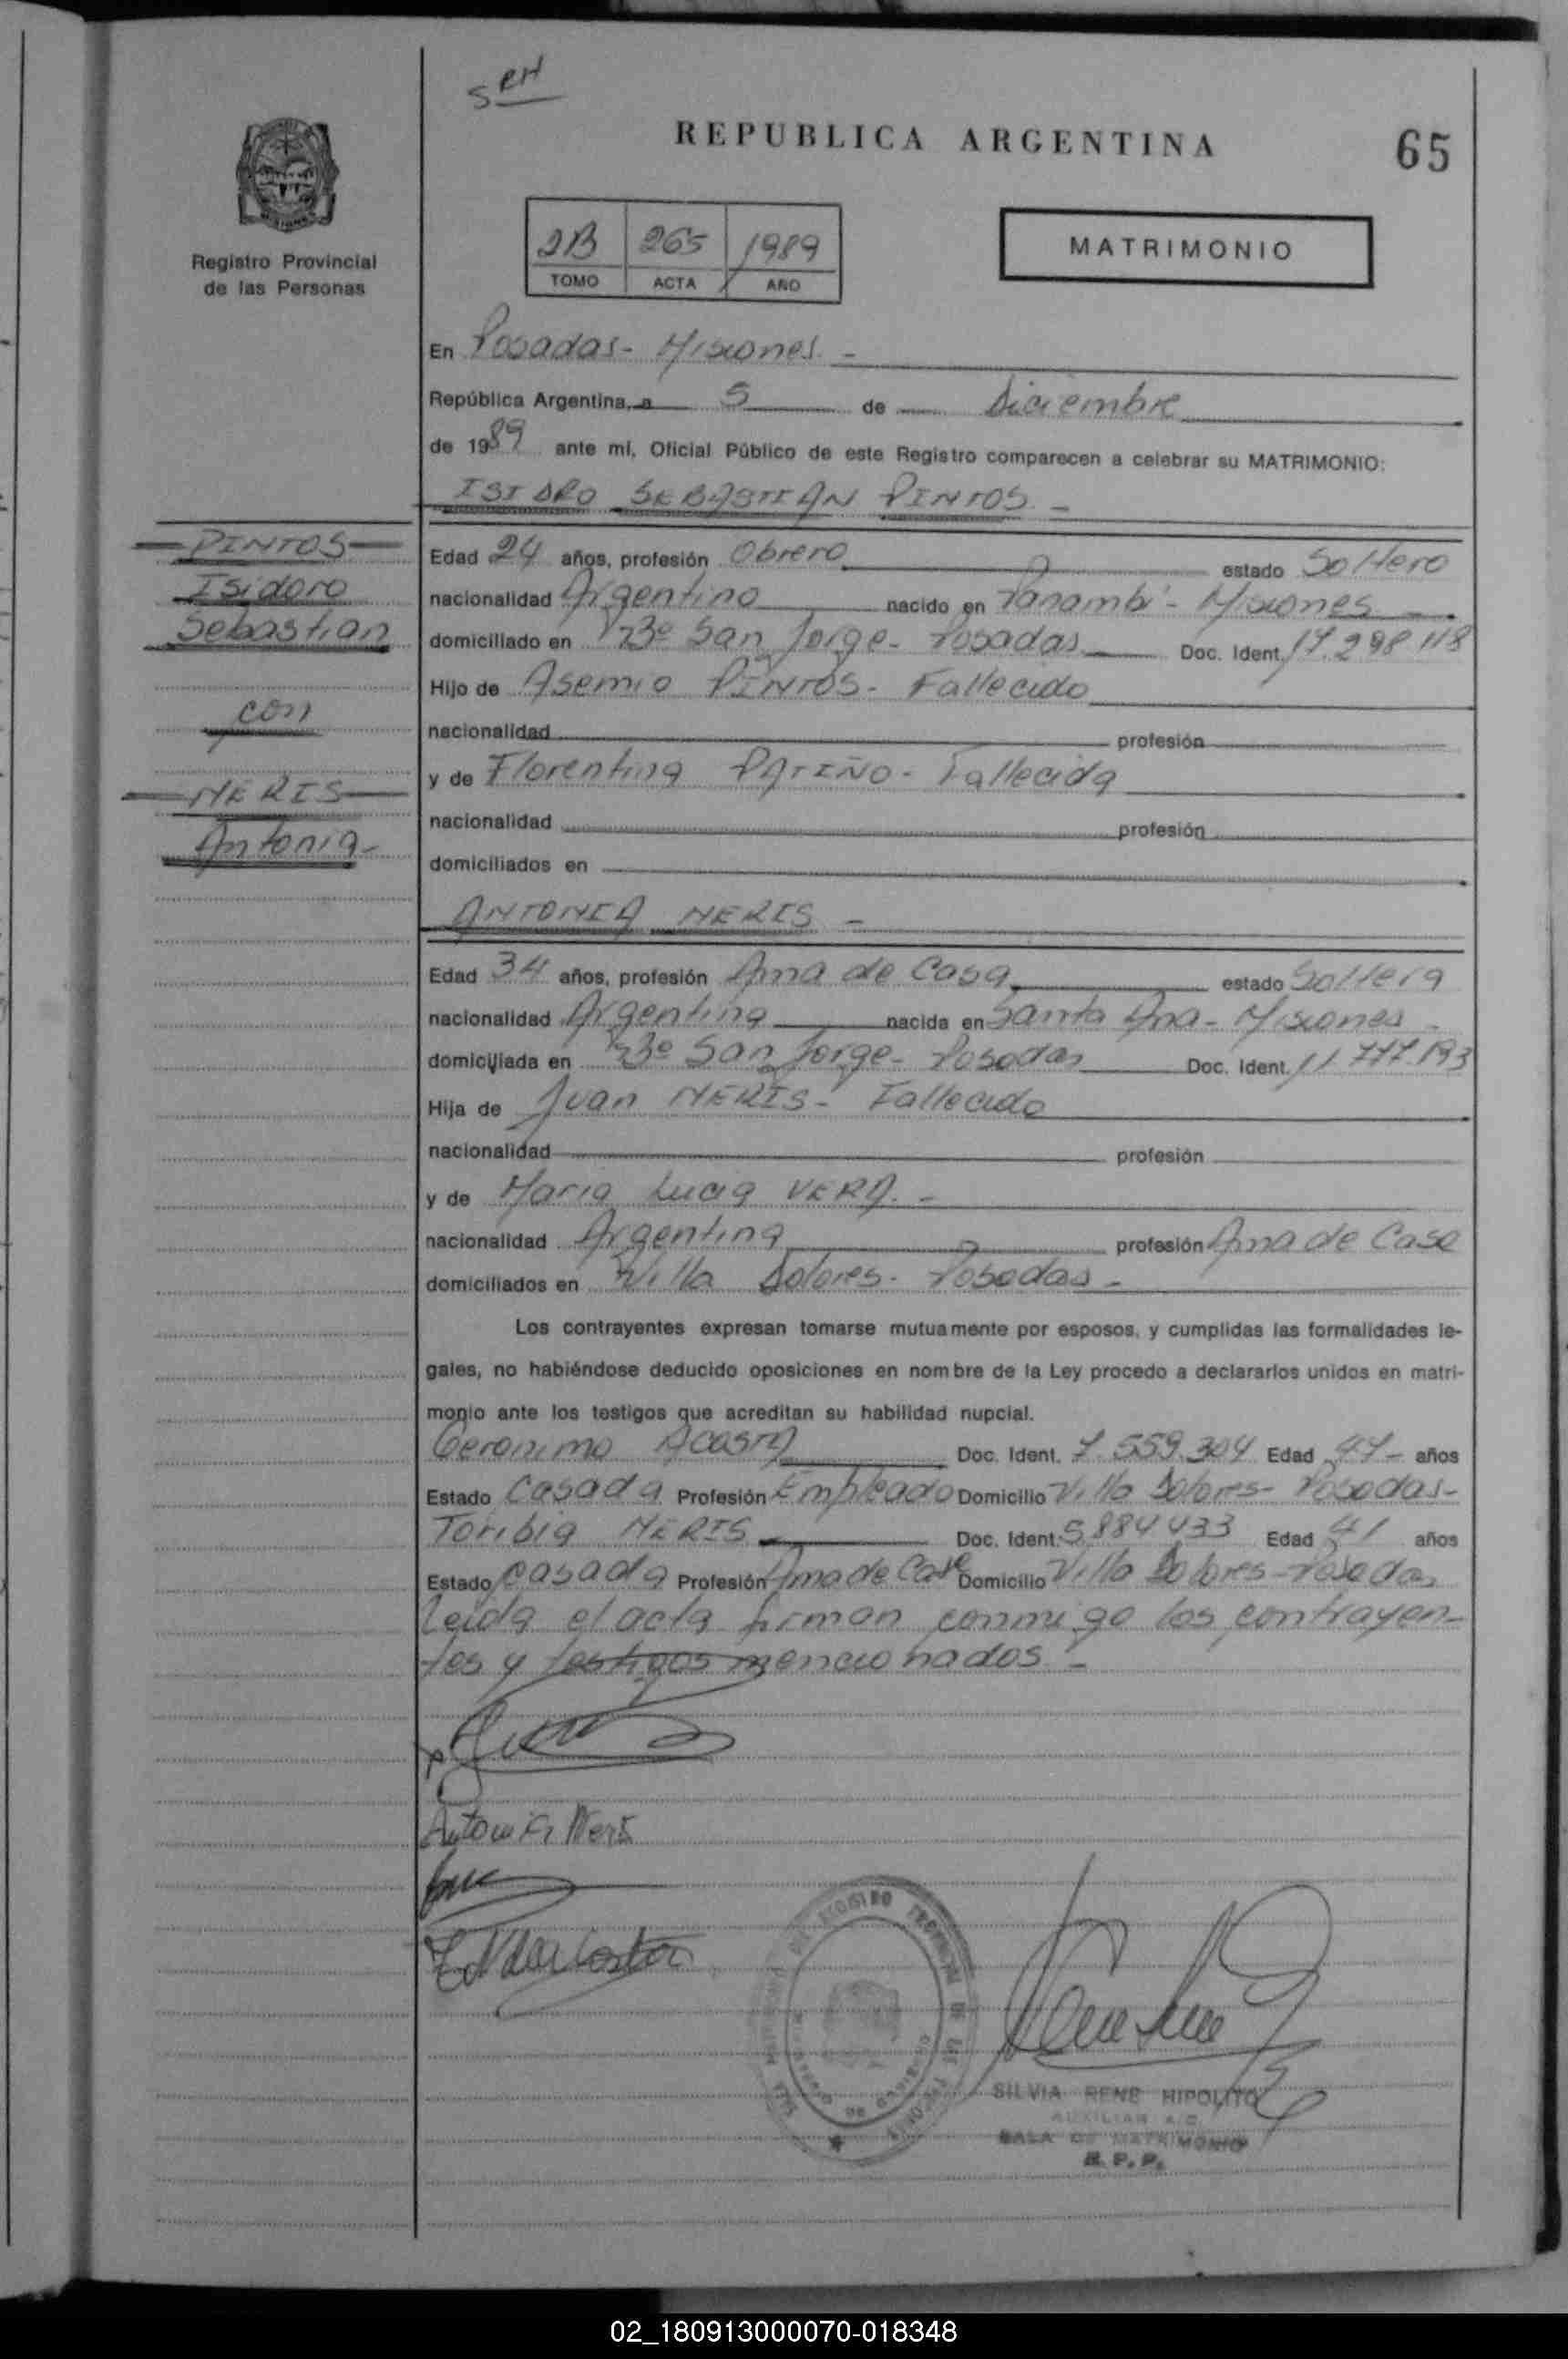 REPUBLICA ARGENTINA
65
Registro Provincial
de las Personas
2B 265 1989
TOMO ACTA AÑO
MATRIMONIO
En Posadas - Misiones -
República Argentina, a 5 de Diciembre
de 1989 ante mí, Oficial Público de este Registro comparecen a celebrar su MATRIMONIO:
ISIDRO SEBASTIAN PINTOS -
PINTOS
Isidoro
Sebastian
con
NERIS
Antonia-
Edad 24 años, profesión Obrero estado Soltero
nacionalidad Argentino nacido en Panambí - Misiones
domiciliado en Bº San Jorge - Posadas Doc. Ident. 17.298.118
Hijo de Asemio PINTOS - Fallecido
nacionalidad profesión
y de Florentina PATIÑO - Fallecida
nacionalidad profesión
domiciliados en
ANTONIA NERIS -
Edad 34 años, profesión Ama de Casa estado Soltera
nacionalidad Argentina nacida en Santa Ana - Misiones -
domiciliada en Bº San Jorge - Posadas Doc. Ident. 11.777.193
Hija de Juan NERIS - Fallecido
nacionalidad profesión
y de Maria Lucia VERA. -
nacionalidad Argentina profesión Ama de Casa
domiciliados en Villa Dolores - Posadas -
Los contrayentes expresan tomarse mutuamente por esposos, y cumplidas las formalidades le-
gales, no habiéndose deducido oposiciones en nombre de la Ley procedo a declararlos unidos en matri-
monio ante los testigos que acreditan su habilidad nupcial.
Geronimo ACOSTA Doc. Ident. 7.559.304 Edad 47 - años
Estado Casada Profesión Empleado Domicilio Villa Dolores - Posadas -
Toribia NERIS Doc. Ident. 5.884.433 Edad 41 años
Estado casada Profesión Ama de Casa Domicilio Villa Dolores - Posadas
Leida el acta firman conmigo los contrayen-
tes y testigos mencionados -
Antonia Neris
SILVIA RENE HIPOLITO
AUXILIAR A/C
SALA DE MATRIMONIO
R. P. P.
02_180913000070-018348